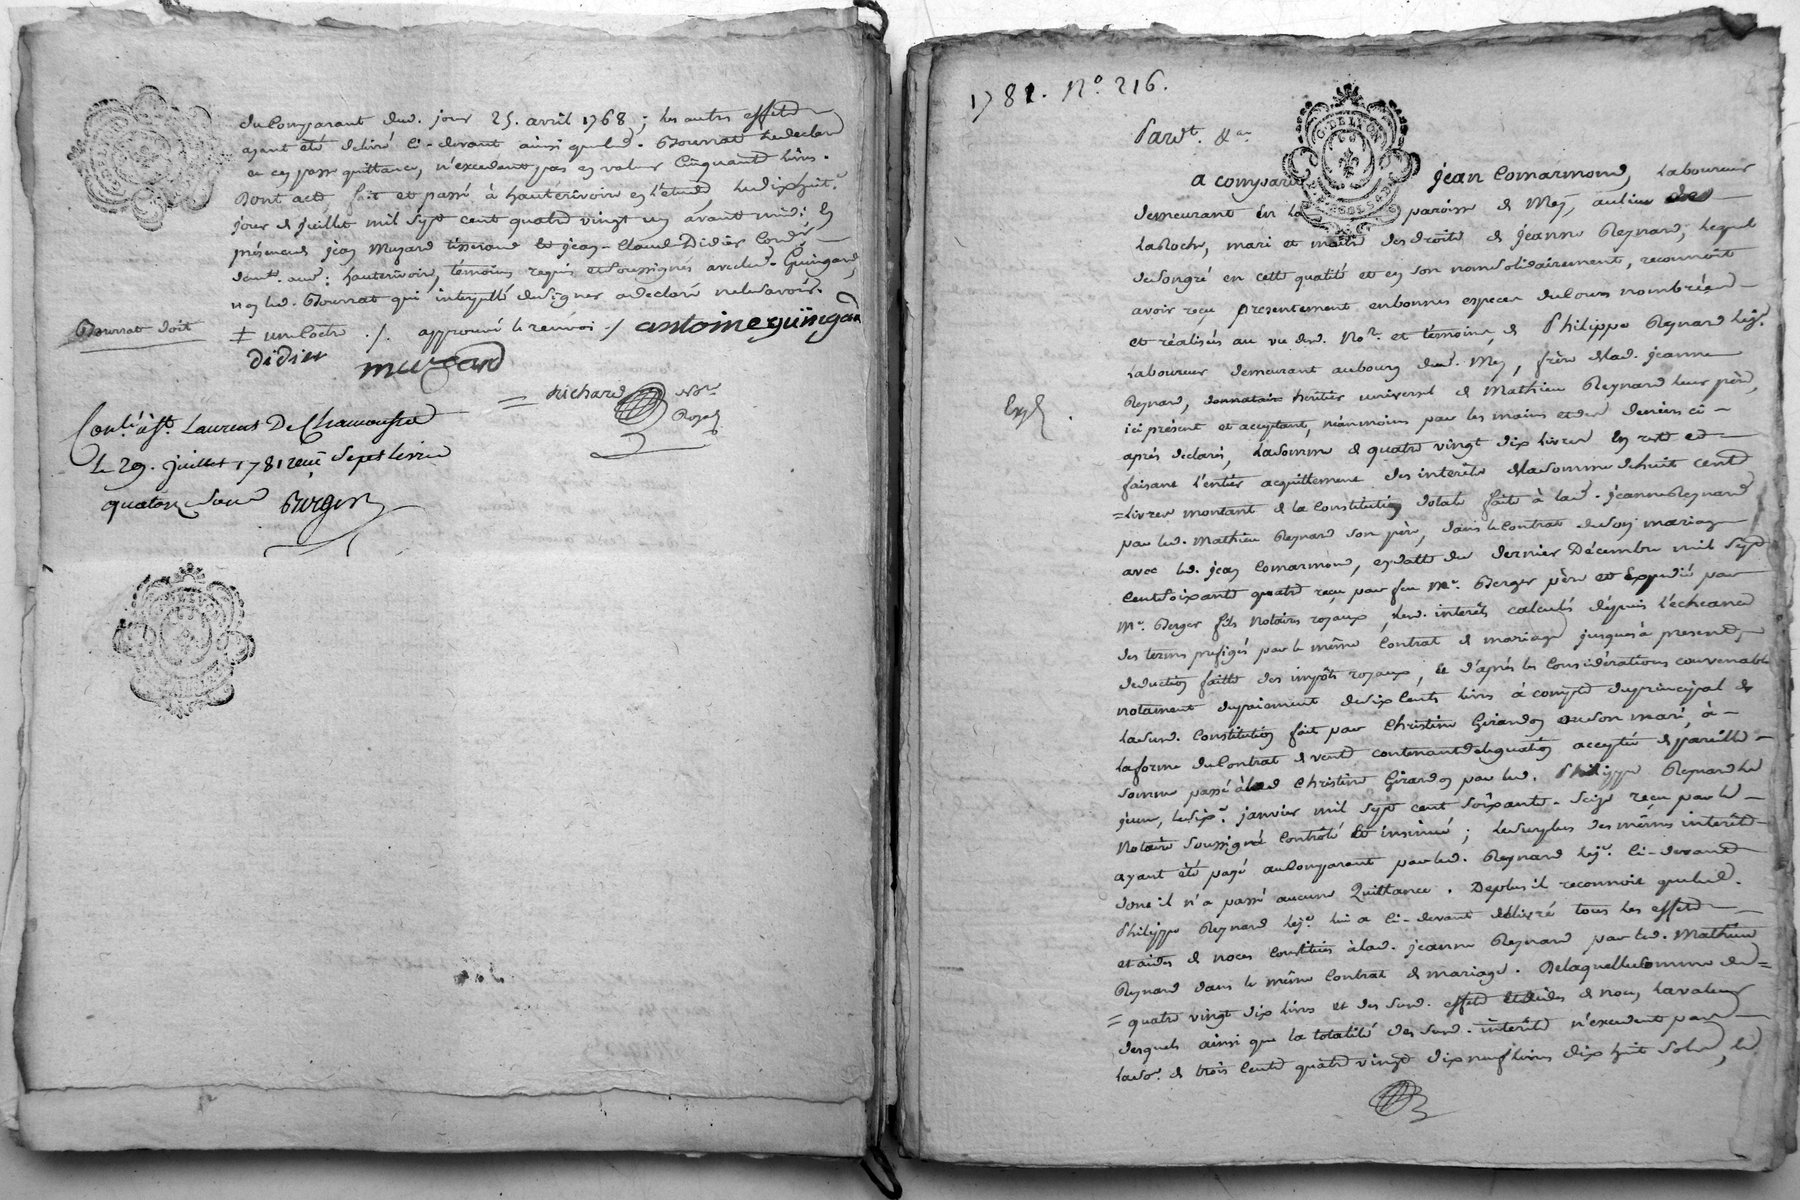 du Comparant dud. jour 25. avril 1768 ; les autres effets
ayant été délivré ci-devant ainsi que led. Bournat le déclare
et en passe quittance, n'excedent pas en valeur Cinquante livres.
Dont acte, fait et passé à hauterivoire en l'etude, le dixhuit.e
jour de juillet mil sept cent quatre vingt un avant midi ; En
présence de jean Muzard tisserand et jean-Claude Didier
demt. aud. hauterivoire, témoins requis et soussignés avec led. Guingard,
non led. Bournat qui interpellé de signer a declaré ne le savoir.
Bournat doit
‡ un Coffre ./. approuvé le renvoi ./. antoine guingard
didier muzard
Richard No.re Royal
Con.lé à St. Laurent De Chamousset
Le 29. juillet 1781 reçu Sept Livres
quatorze sous Burger
1781. N.o 216.
Pard.t &.a
G. DE LYON
A comparu jean Comarmond, Laboureur
demeurant en la paroisse de Mey, au lieu de
la Roche, mari et maître des droits de jeanne Reynard ; lequel
de son gré en cette qualité et en son nom solidairement, reconnoit
avoir reçu presentement en bonnes especes du Cours nombrées
et réalisées au vu dud. No.re et témoins, de Philippe Reynard lej.e
Laboureur demeurant au bourg dud. Mey, frère de lad. jeanne
Reynard, donnataire héritier universel de Mathieu Reynard leur père,
Exp.
ici présent et acceptant, néanmoins par les mains et des deniers ci-
après déclarés, la somme de quatre vingt dix livres En reste et
faisant l'entier acquittement des interêts de la somme de huit cents
= livres montant de la Constitution dotale faite à lad. jeanne Reynard
par led. Mathieu Reynard son père, dans le Contrat de son mariage
avec led. jean Comarmond, en datte du dernier Décembre mil sept
Cent soixante quatre reçu par feu M.e Berger père et Expedié par
M.e Berger fils Notaires royaux, lesd. interêts calculés depuis l'écheance
des termes prefigés par le même Contrat de mariage jusques à present,
déduction faitte des impôts royaux, et d'après les Considérations couvenables
notament du paiement de six Cents livres à compte du principal de
lad. susd. Constitution fait par Christine Girardon ou son mari, à
la forme du Contrat de vente contenant delegation acceptée de pareille
somme passé à lad. Christine Girardon par led. Philippe Reynard le
jeune, le six.e janvier mil sept cent soixante-seize reçu par le
Notaire soussigné Controlé et insinué ; le surplus des mêmes interêts
ayant été payé au Comparant par led. Reynard lej.e Ci-devant
dont il n'a passé aucune Quittance. Deplus il reconnoit que led.
Philippe Reynard lej.e lui a ci-devant délivré tous les effets
et aides de noces Constitués à lad. jeanne Reynard par led. Mathieu
Reynard dans le même Contrat de mariage. De laquelle somme de
= quatre vingt dix livres et des susd. effets et aides de noces, la valeur
desquels ainsi que la totalité des susd. interêts n'excedent pas
la so.e de trois Cents quatre vingt dix neuf livres dix huit sols, led.